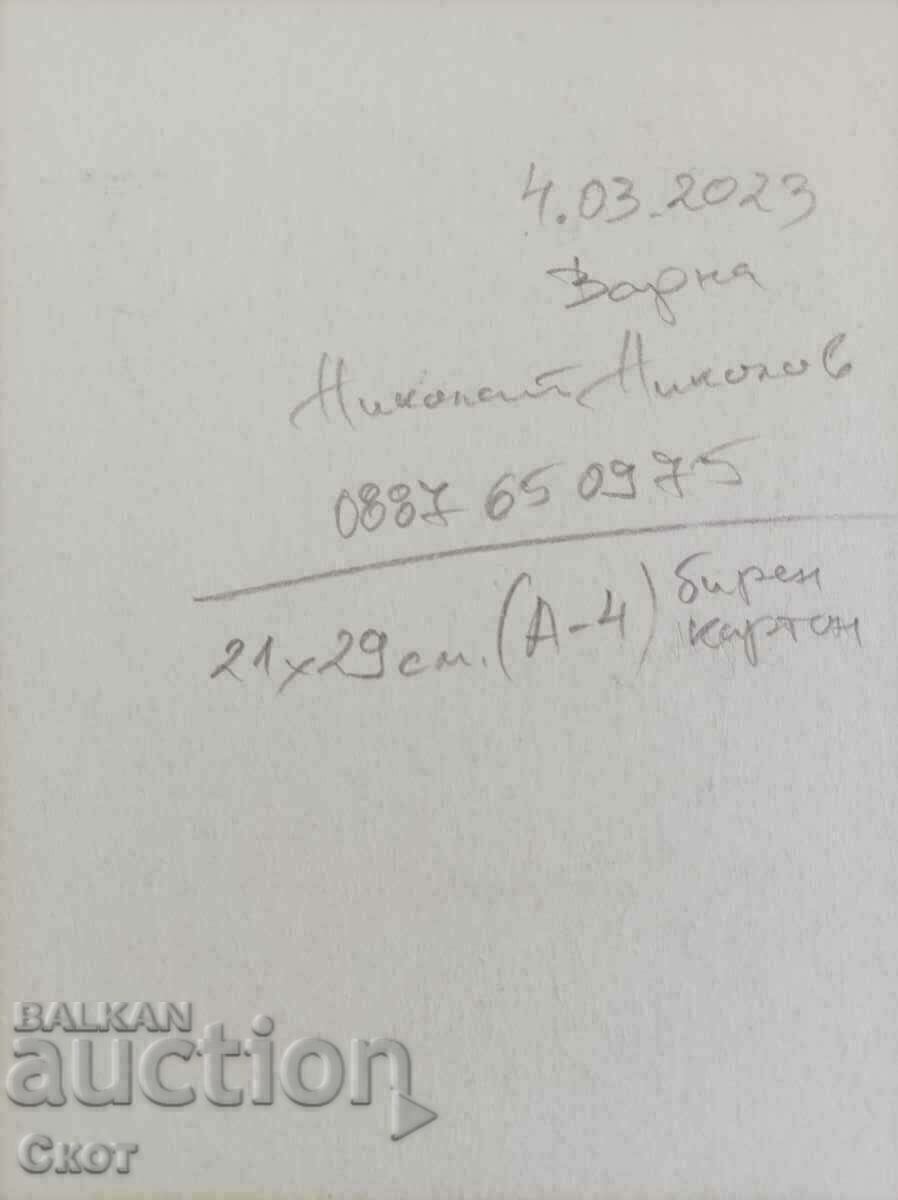 4.03.2023
Варна
Николай Николов
0887 650975
21x29 см. (А-4) бирен
картон
BALKAN
auction
Скот